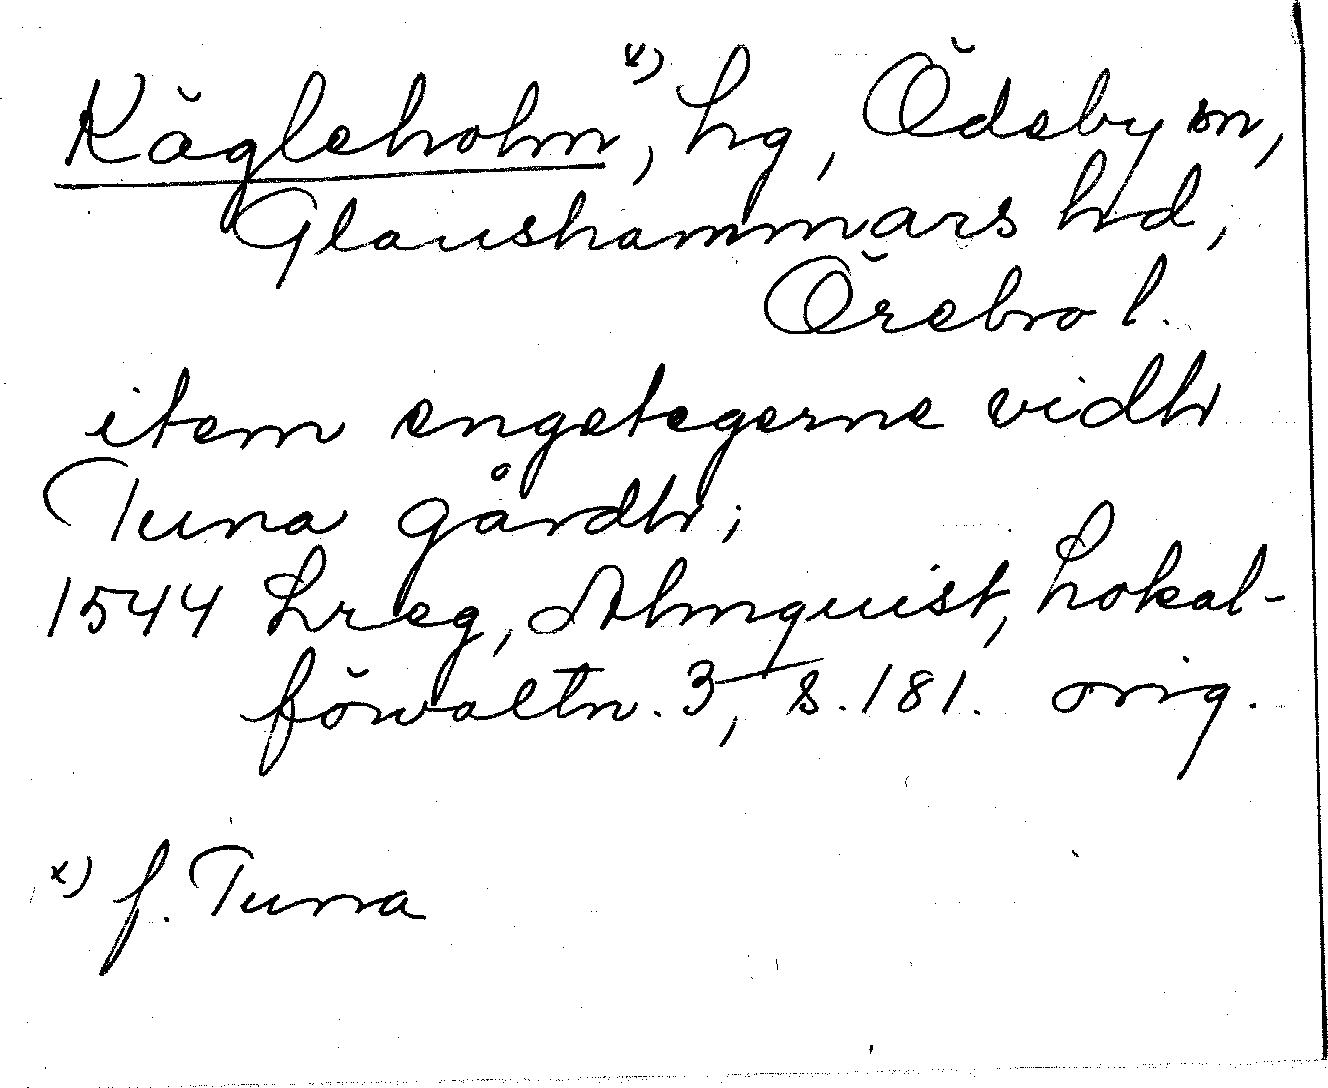 Kägleholm x), hg, Ödeby sn,
Glanshammars hd,
Örebro l.
item engetegerne vidh
Tuna gårdh;
1544 hreg, Almquist, Lokal-
förvaltn. 3, s. 181. orig.
x) f. Tuna